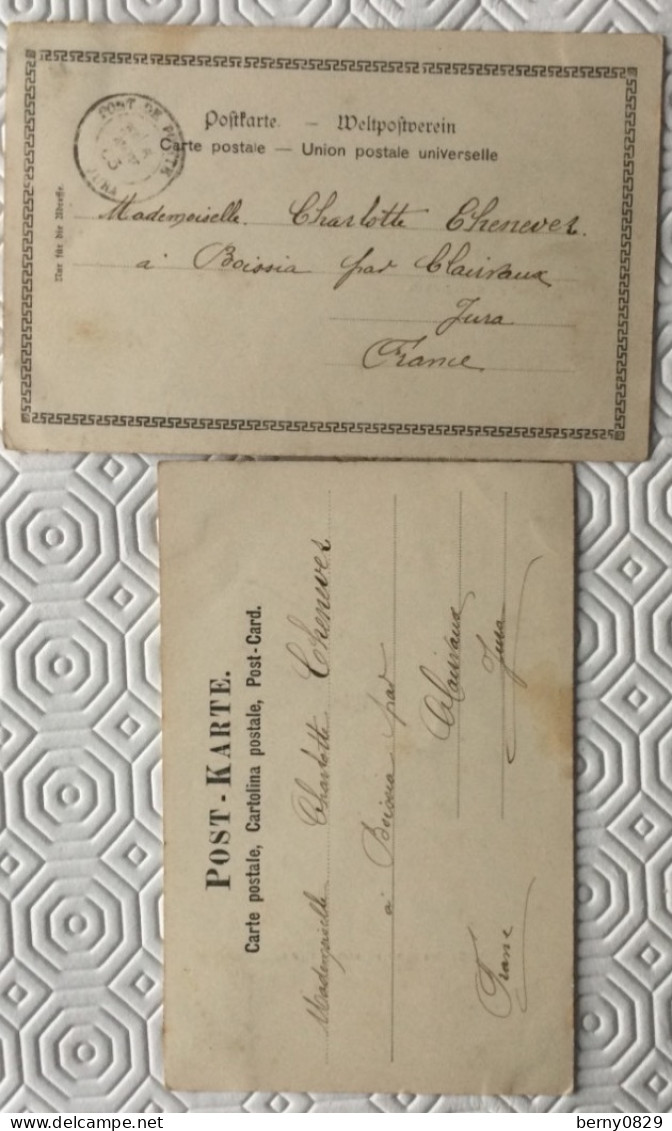 Postkarte. — Weltpostverein
Carte postale — Union postale universelle
Nur für die Adresse.
PONT DE POITTE
JURA
Mademoiselle. Charlotte Chenevez.
à Boissia par Clairvaux
Jura
France
POST-KARTE.
Carte postale, Cartolina postale, Post-Card.
Mademoiselle Charlotte Chenevez
à Boissia par
Clairvaux
Jura
France
delcampe.net
berny0829